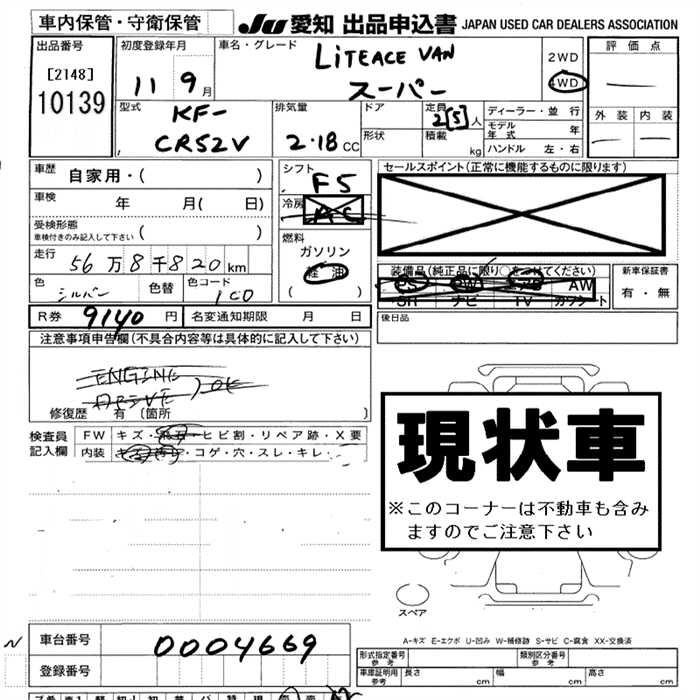 車内保管・守衛保管
JU 愛知 出品申込書 JAPAN USED CAR DEALERS ASSOCIATION
出品番号
[2148]
10139
初度登録年月
11 9月
車名・グレード
LITEACE VAN
スーパー
2WD
4WD
評価点
外装 内装
型式
KF-
CR52V
排気量
2.18 CC
ドア
形状
定員
2[5]人
積載
kg
ディーラー・並行
モデル年式 年
ハンドル 左・右
車歴 自家用・( )
車検 年 月( 日)
受検形態
車検付きのみ記入して下さい ( )
走行 56万8千820km
色 シルバー 色替 色コード 1C0
シフト
F5
冷房
AC
燃料
ガソリン
軽油
( )
セールスポイント(正常に機能するものに限ります)
装備品(純正品に限り○をつけてください)
PS PW AW
SR ナビ TV カワシート
新車保証書
有・無
R券 9140円 名変通知期限 月 日
後日品
注意事項申告欄(不具合内容等は具体的に記入して下さい)
ENGINE
DRIVE ) OK
修復歴 有〔箇所 〕
検査員
記入欄
FW キズ・飛石・ヒビ割・リペア跡・X要
内装 ・コゲ・穴・スレ・キレ・
現状車
※このコーナーは不動車も含み
ますのでご注意下さい
スペア
A-キズ E-エクボ U-凹み W-補修跡 S-サビ C-腐食 XX-交換済
N
車台番号 0004669
登録番号
形式指定番号 参考
類別区分番号 参考
車庫証明用 参考 長さ cm 幅 cm 高さ cm